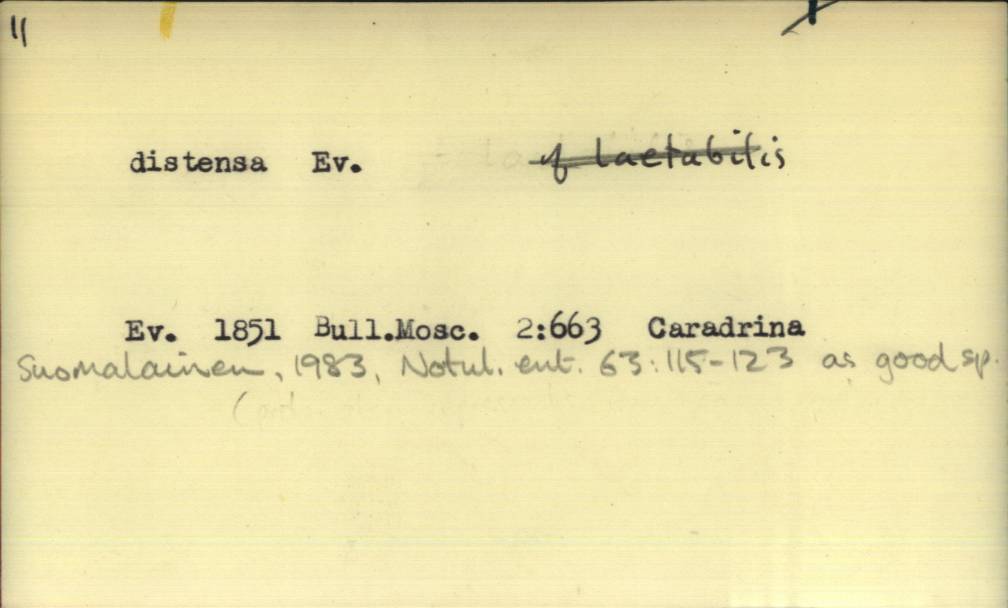 11
distensa Ev. of laetabilis
Ev. 1851 Bull.Mosc. 2:663 Caradrina
Suomalainen, 1983, Notul. ent. 63:115-123 as good sp.